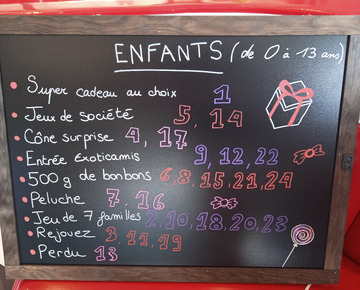 ENFANTS (de 0 à 13 ans)
• Super cadeau au choix 1
• Jeux de société 5, 14
• Cône surprise 4, 17
• Entrée Exoticamis 9, 12, 22
• 500 g de bonbons 6, 8, 15, 21, 24
• Peluche 7, 16
• Jeu de 7 familles 2, 10, 18, 20, 23
• Rejouez 3, 11, 19
• Perdu 13